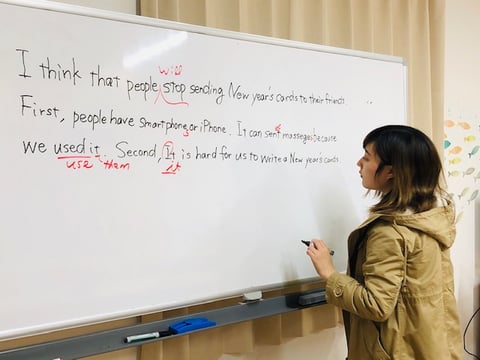 will
I think that people stop sending New year's cards to their friends. ..
First, people have smartphone s or iPhone. It can sent massages because
we used it. Second, It is hard for us to write a New year's cards.
use them it